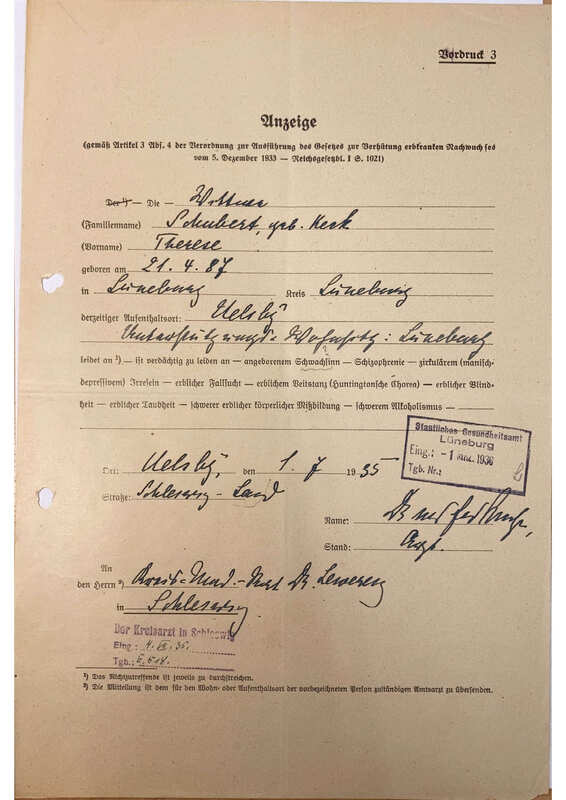 Vordruck 3
Anzeige
(gemäß Artikel 3 Abs. 4 der Verordnung zur Ausführung des Gesetzes zur Verhütung erbkranken Nachwuchses
vom 5. Dezember 1933 — Reichsgesetzbl. I S. 1021)
Der ¹) — Die — Wittwe
(Familienname) Schubert, geb. Keck
(Vorname) Therese
geboren am 21. 4. 87
in Lüneburg Kreis Lüneburg
derzeitiger Aufenthaltsort: Uelsby
Unterstützungs-Wohnsitz: Lüneburg
leidet an ¹) — ist verdächtig zu leiden an — angeborenem Schwachsinn — Schizophrenie — zirkulärem (manisch-
depressivem) Irresein — erblicher Fallsucht — erblichem Veitstanz (Huntingtonsche Chorea) — erblicher Blind-
heit — erblicher Taubheit — schwerer erblicher körperlicher Mißbildung — schwerem Alkoholismus —
Staatliches Gesundheitsamt
Lüneburg
Eing.: - 1. 1936
Tgb. Nr.:
Ort: Uelsby, den 1. 7 1935
Straße: Schleswig-Land
Name: Dr med
Stand: Arzt.
An
den Herrn ²) Kreis-Med.-Rat Dr.
in Schleswig
Der Kreisarzt in Schleswig
Eing: 4. VII. 35.
Tgb.:
¹) Das Nichtzutreffende ist jeweils zu durchstreichen.
²) Die Mitteilung ist dem für den Wohn- oder Aufenthaltsort der vorbezeichneten Person zuständigen Amtsarzt zu übersenden.